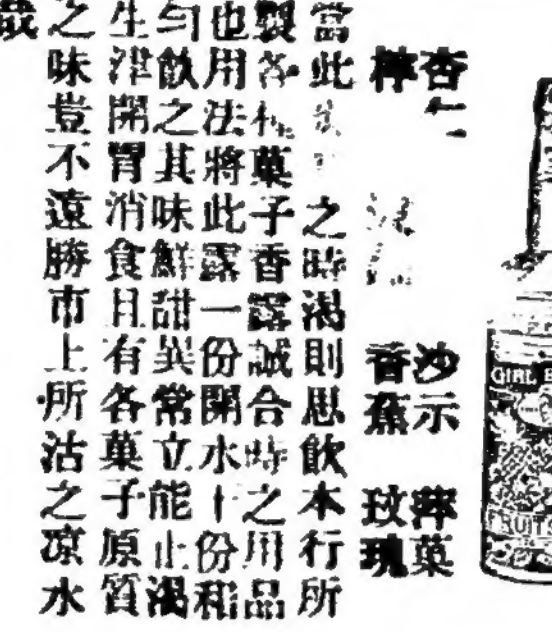 杏仁 沙示 蘋菓
檸 香蕉 玫瑰
當此 之時渴則思飲本行所
製各種菓子香露誠合時之用品
也用法將此露一份開水十份和
勻飲之其味鮮甜異常立能止渴
生津開胃消食且有各菓子原質
之味豈不遠勝市上所沽之凉水
哉
GIRL